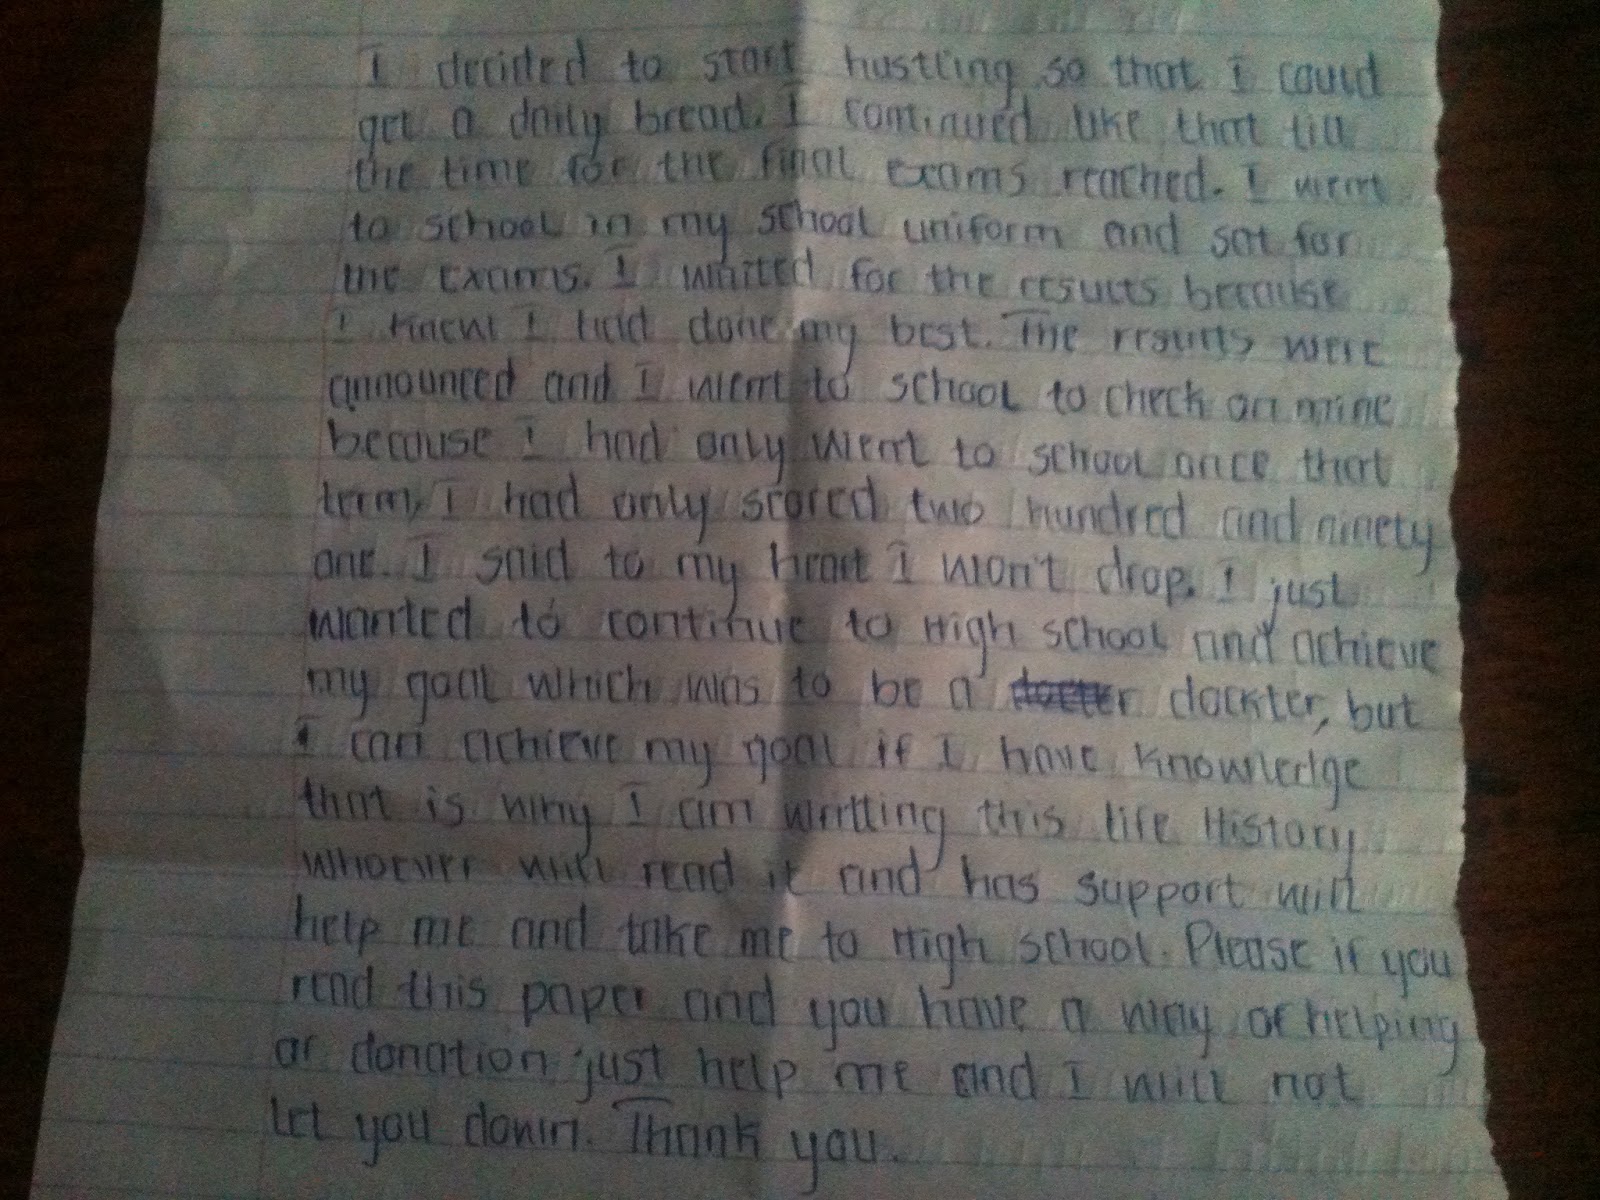 I decided to start hustling so that I could
get a daily bread. I continued like that till
the time for the final exams reached. I went
to school in my school uniform and sat for
the exams. I waited for the results because
I knew I had done my best. The results were
announced and I went to school to check on mine
because I had only went to school once that
term, I had only scored two hundred and ninety
one. I said to my heart I won't drop. I just
wanted to continue to High school and achieve
my goal which was to be a dockter, but
I can achieve my goal if I have knowledge
that is why I am writting this life History
whoever will read it and has support will
help me and take me to High school. Please if you
read this paper and you have a way of helping
or donation just help me and I will not
let you down. Thank you.